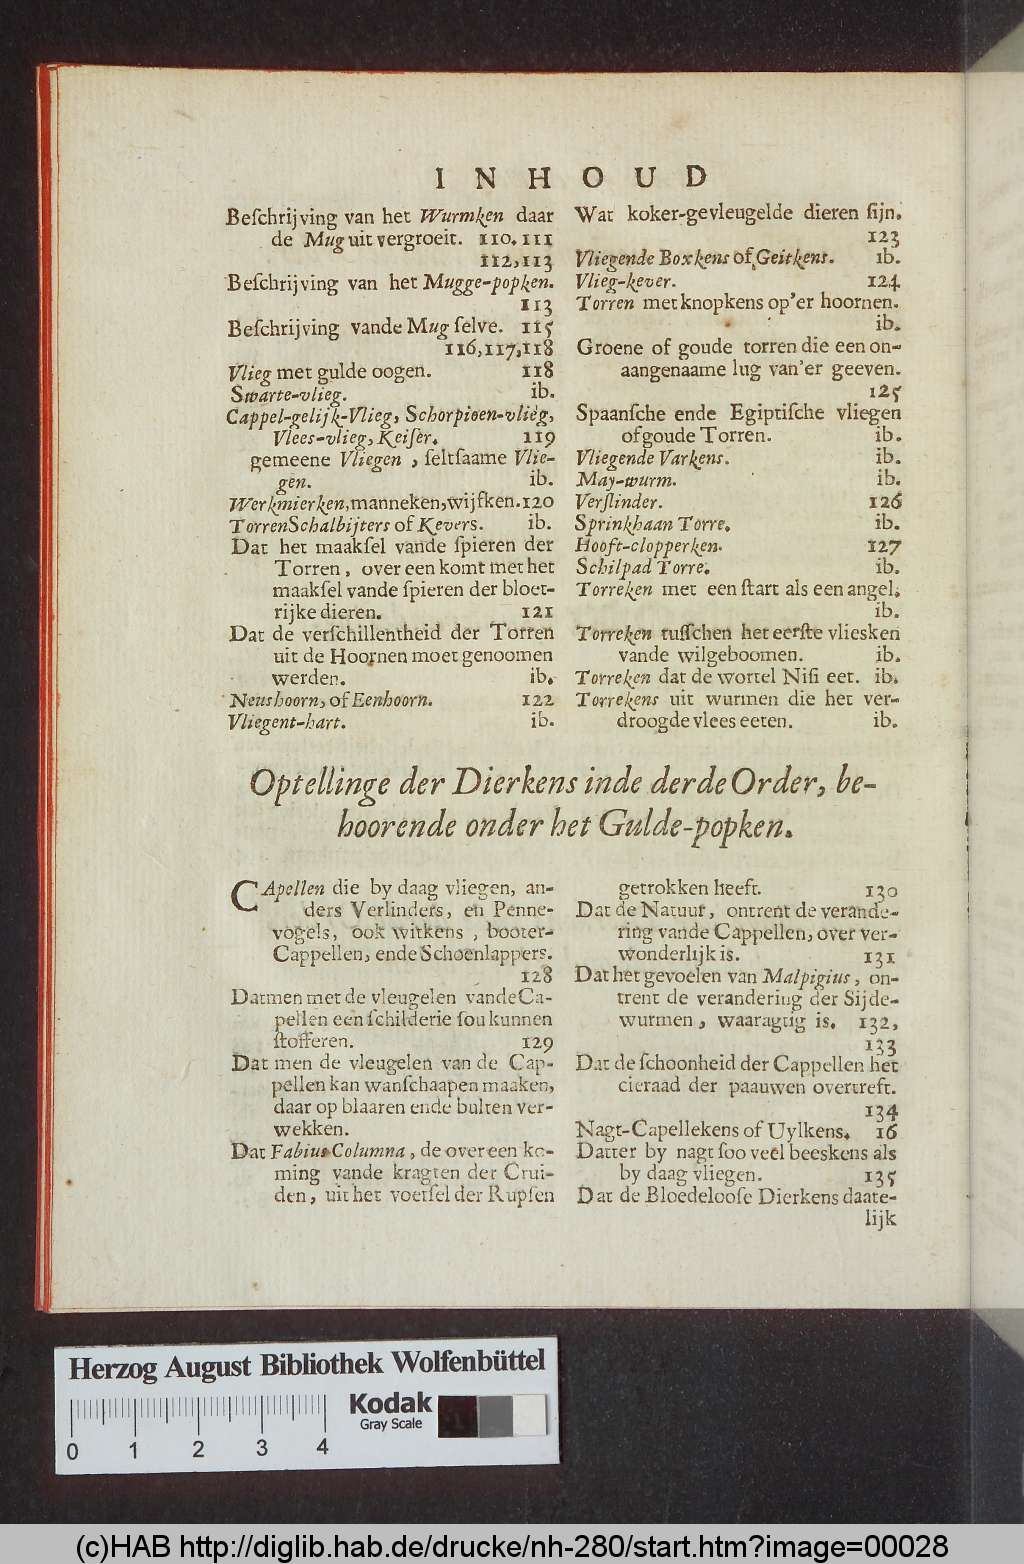 INHOUD
Beſchrijving van het Wurmken daar
de Mug uit vergroeit. 110. 111
112, 113
Beſchrijving van het Mugge-popken.
113
Beſchrijving vande Mug ſelve. 115
116, 117, 118
Vlieg met gulde oogen. 118
Swarte-vlieg. ib.
Cappel-gelijk-Vlieg, Schorpioen-vlieg,
Vlees-vlieg, Keiſer. 119
gemeene Vliegen, ſeltſaame Vlie-
gen. ib.
Werkmierken, manneken, wijfken. 120
Torren Schalbijters of Kevers. ib.
Dat het maakſel vande ſpieren der
Torren, over een komt met het
maakſel vande ſpieren der bloet-
rijke dieren. 121
Dat de verſchillentheid der Torren
uit de Hoornen moet genoomen
werden. ib.
Neushoorn, of Eenhoorn. 122
Vliegent-hart. ib.
Wat koker-gevleugelde dieren ſijn.
123
Vliegende Boxkens of Geitkens. ib.
Vlieg-kever. 124
Torren met knopkens op'er hoornen.
ib.
Groene of goude torren die een on-
aangenaame lug van'er geeven.
125
Spaanſche ende Egiptiſche vliegen
of goude Torren. ib.
Vliegende Varkens. ib.
May-wurm. ib.
Verſlinder. 126
Sprinkhaan Torre. ib.
Hooft-clopperken. 127
Schilpad Torre. ib.
Torreken met een ſtart als een angel.
ib.
Torreken tuſſchen het eerſte vliesken
vande wilgeboomen. ib.
Torreken dat de wortel Niſi eet. ib.
Torrekens uit wurmen die het ver-
droogde vlees eeten. ib.
Optellinge der Dierkens inde derde Order, be-
hoorende onder het Gulde-popken.
CApellen die by daag vliegen, an-
ders Verlinders, en Penne-
vogels, ook witkens, booter-
Cappellen, ende Schoenlappers.
128
Datmen met de vleugelen vande Ca-
pellen een ſchilderie ſou kunnen
ſtofferen. 129
Dat men de vleugelen van de Cap-
pellen kan wanſchaapen maaken,
daar op blaaren ende bulten ver-
wekken.
Dat Fabius Columna, de over een ko-
ming vande kragten der Crui-
den, uit het voetſel der Rupſen
getrokken heeft. 130
Dat de Natuur, ontrent de verande-
ring vande Cappellen, over ver-
wonderlijk is. 131
Dat het gevoelen van Malpigius, on-
trent de verandering der Sijde-
wurmen, waaragtig is. 132,
133
Dat de ſchoonheid der Cappellen het
cieraad der paauwen overtreft.
134
Nagt-Capellekens of Uylkens. 16
Datter by nagt ſoo veel beeskens als
by daag vliegen. 135
Dat de Bloedelooſe Dierkens daate-
lijk
Herzog August Bibliothek Wolfenbüttel
Kodak
Gray Scale
0 1 2 3 4
(c)HAB http://diglib.hab.de/drucke/nh-280/start.htm?image=00028